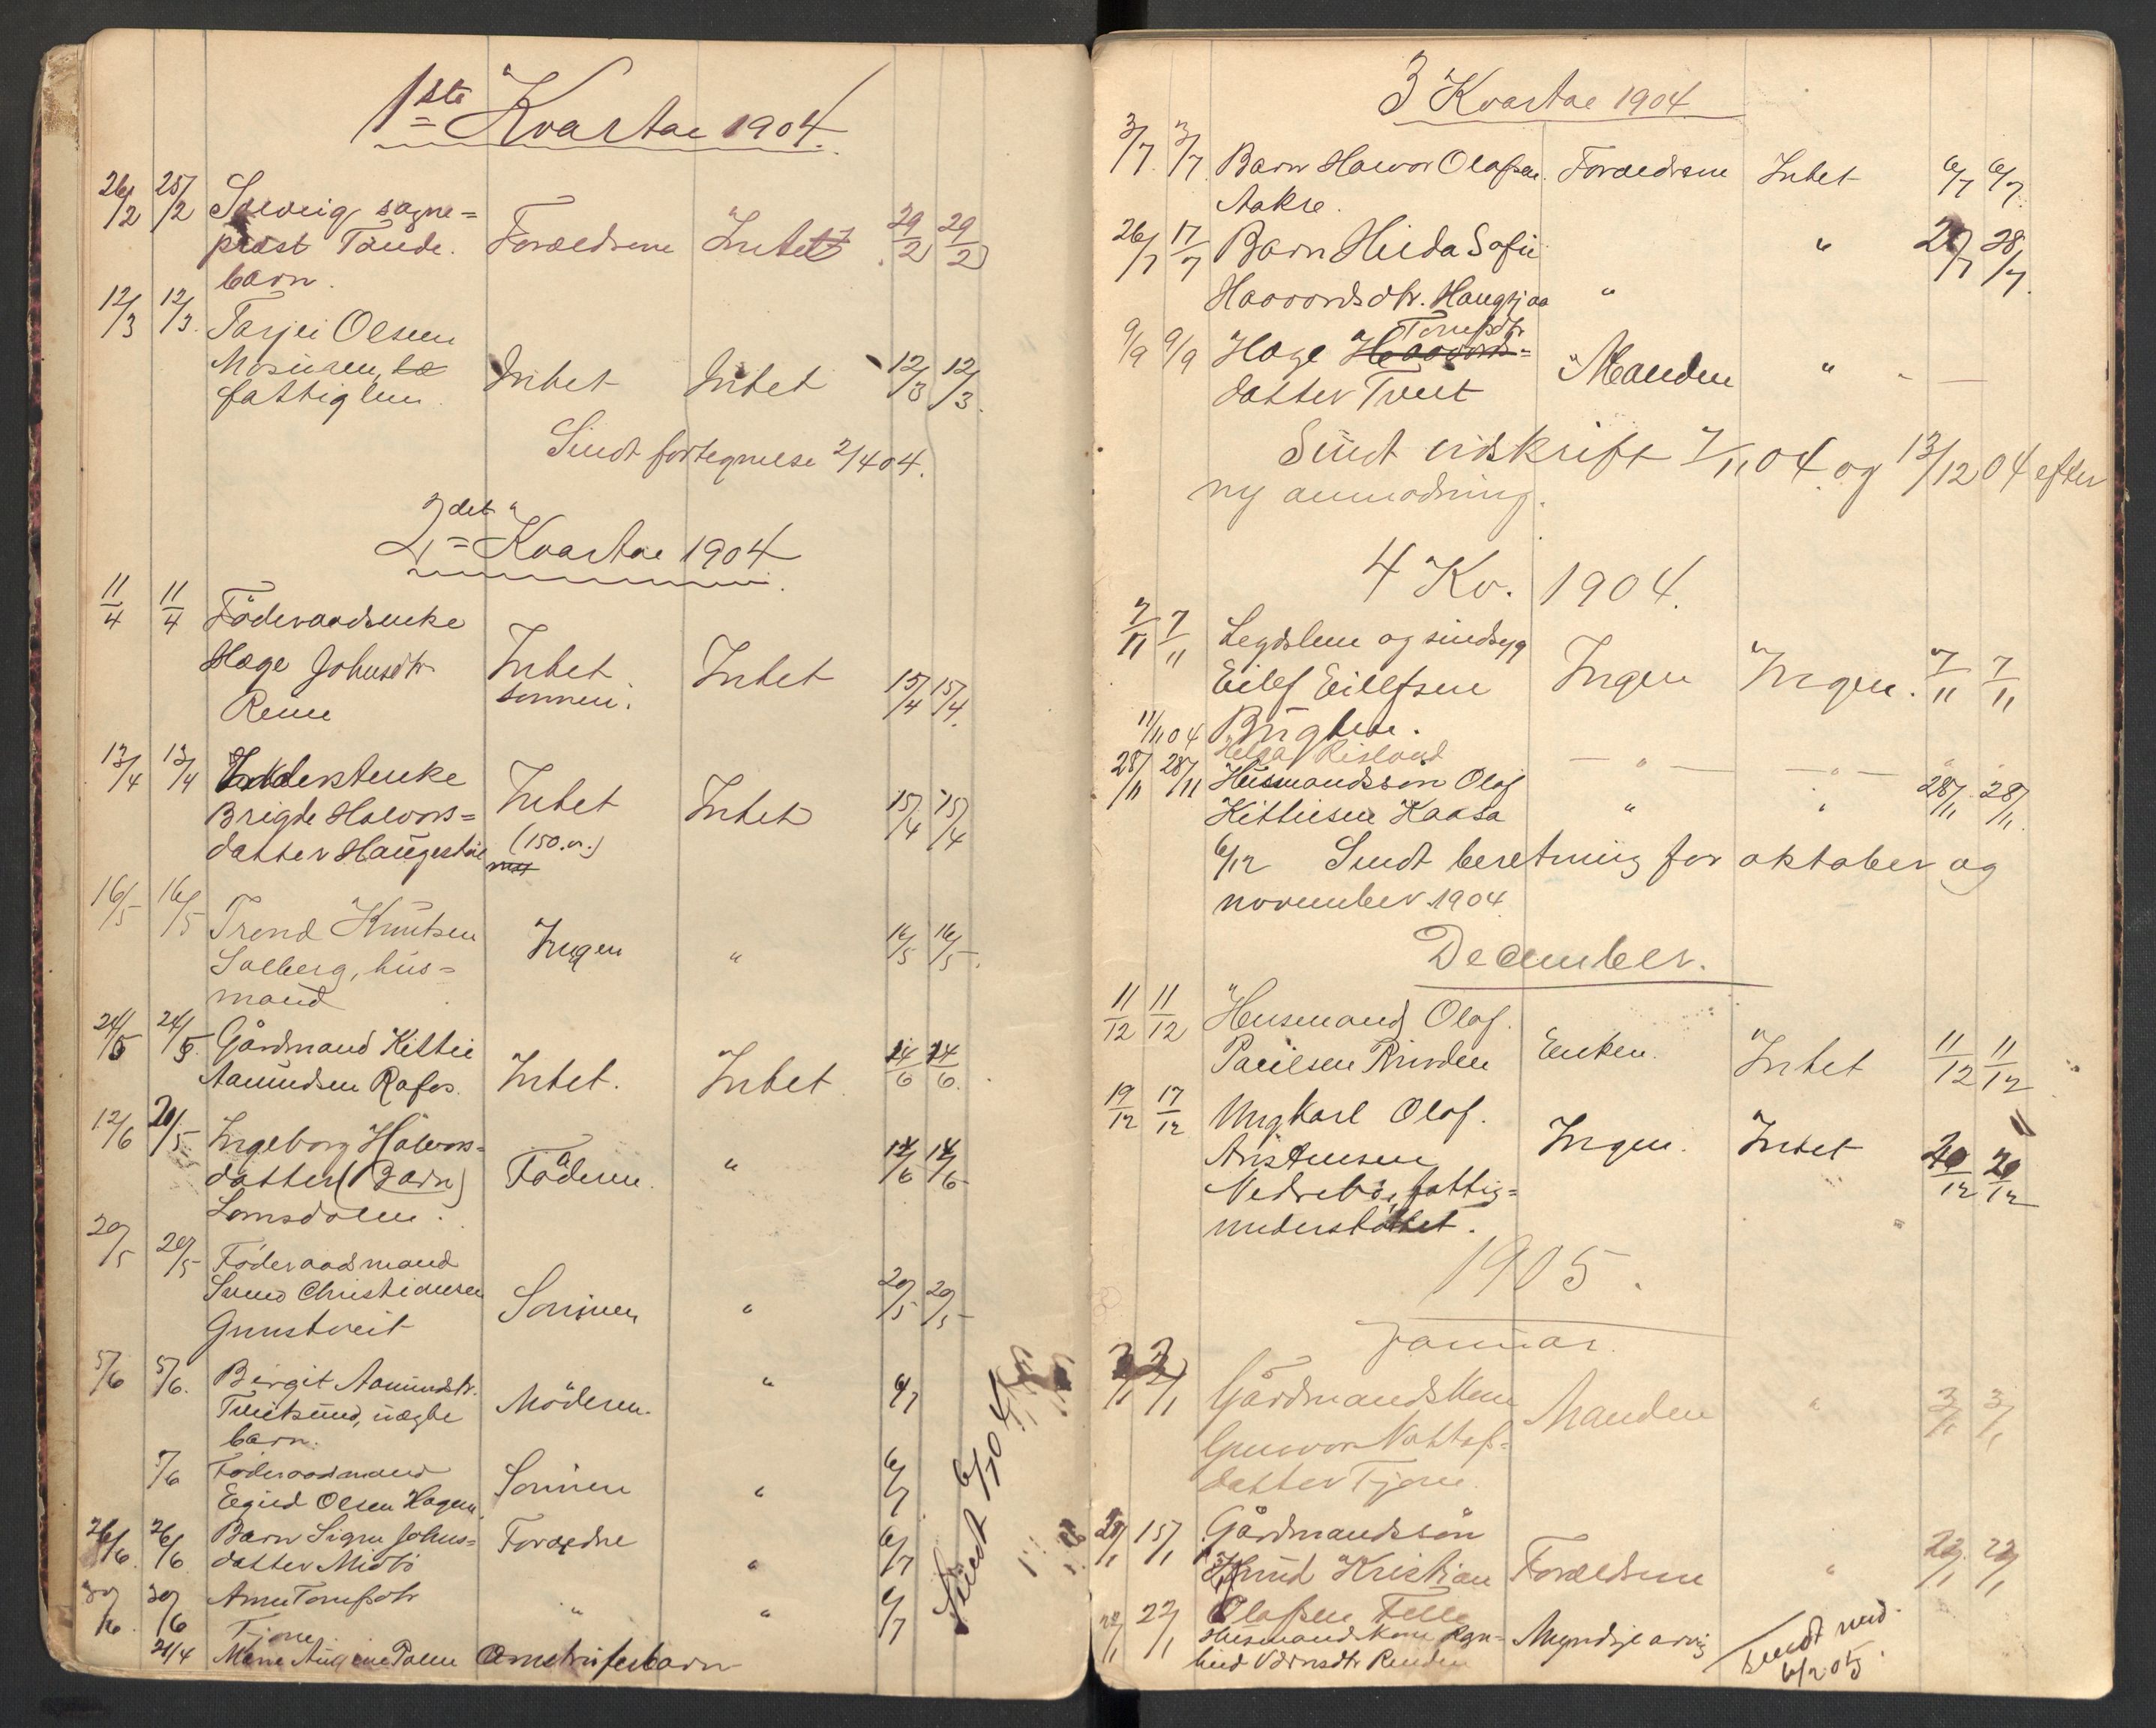 1ste Kvartal 1904.
26/2 25/2 Solveig sogne=
præst Tande. Forældrene Intet 29/2 29/2
barn.
12/3 12/3. Tarjei Olsen
Mosuren, læ
fattiglem. Intet Intet 12/3 12/3.
Sendt fortegnelse 2/4 04.
2det Kvartal 1904
11/4 11/4 Föderaadsenke
Hæge Johnsdtr. Intet Intet 15/4 15/4.
Renne sönnen.
13/4 13/4 enke
Brigde Halvors= Intet Intet 15/4 15/4
datter Haugestöil (150.kr.)
16/5 16/5 Trond Knutsen
Solberg, hus= Ingen " 16/5 16/5.
mand
24/5 24/5. Gårdmand Kittil
Aamundsen Rofos. Intet. Intet 14/6 14/6.
12/6 20/5 Ingeborg Halvors=
datter (Barn) Faderen. " 14/6 14/6
Lomsdalen.
20/5 20/5 Föderaadsmand
Svend Christiansen Sönnen " 20/5 20/5
Gunstveit
5/6 5/6. Birgit Aamundsdtr. " 6/7
Tveitsund, uægte Moderen.
barn.
7/6 Föderaadsmand
Eigild Olsen Hagen Sönnen " 6/7
26/6 26/6 Barn Signe Johns= Forældre
datter Midbö " 6/7
30/6. 30/6 Anne Torufsdtr " " 6/7
Tjone.
21/4 Marie Augine Omstreiferbarn
Sendt 6/7 04
3 Kvartal 1904
3/7. 3/7. Barn Halvor Olafsen. Forældrene Intet 6/7 6/7.
Aakre.
26/7 17/7 Barn Hilda Sofie " 28/7 28/7.
Haavardsdtr. Haugsjaa "
Torufsdtr
9/9 9/9 Hæge Haavards=
datter Tveit Manden " - —
Sendt utskrift 7/11 04. og 13/12 04 efter
ny anmodning.
4 Kv. 1904.
7/11 7/11 Legdslem og sindsyg
Eilef Eilefsen Ingen Ingen. 7/11 7/11
11/11 04
Helga Risland — " — — " —
28/11 28/11 Husmandssön Olaf 28/11 28/11.
Kittilsen Kaasa " "
6/12 Sendt beretning for oktober og
november 1904.
December.
11/12 11/12 Husmand Olaf.
Paulsen Enken. Intet 11/12 11/12
19/12 17/12 Ungkarl Olaf.
Aristensen Ingen. Intet 20/12 20/12
Nedrebö, fattig=
understöttet.
1905.
Januar.
3/1 2/1 Gårdmandskone Manden " 3/1 3/1
Gunvor Nottof=
datter Tjone.
15/1 Gårdmandssön
Knud Kristian Forældrene " 23/1 23/1
Olafsen Felle
22/1 Husmandskone Ragn= Myndige arving
hild
Sendt ind.
6/2 05.